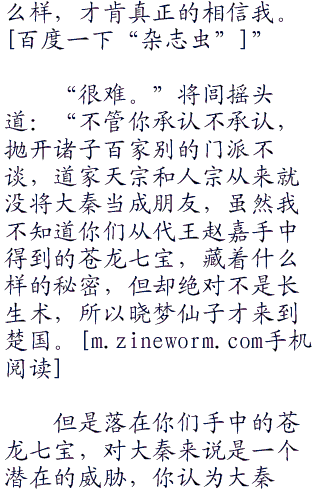 么样，才肯真正的相信我。
[百度一下“杂志虫”]”
“很难。”将闾摇头
道：“不管你承认不承认，
抛开诸子百家别的门派不
谈，道家天宗和人宗从来就
没将大秦当成朋友，虽然我
不知道你们从代王赵嘉手中
得到的苍龙七宝，藏着什么
样的秘密，但却绝对不是长
生术，所以晓梦仙子才来到
楚国。[m.zineworm.com手机
阅读]
但是落在你们手中的苍
龙七宝，对大秦来说是一个
潜在的威胁，你认为大秦